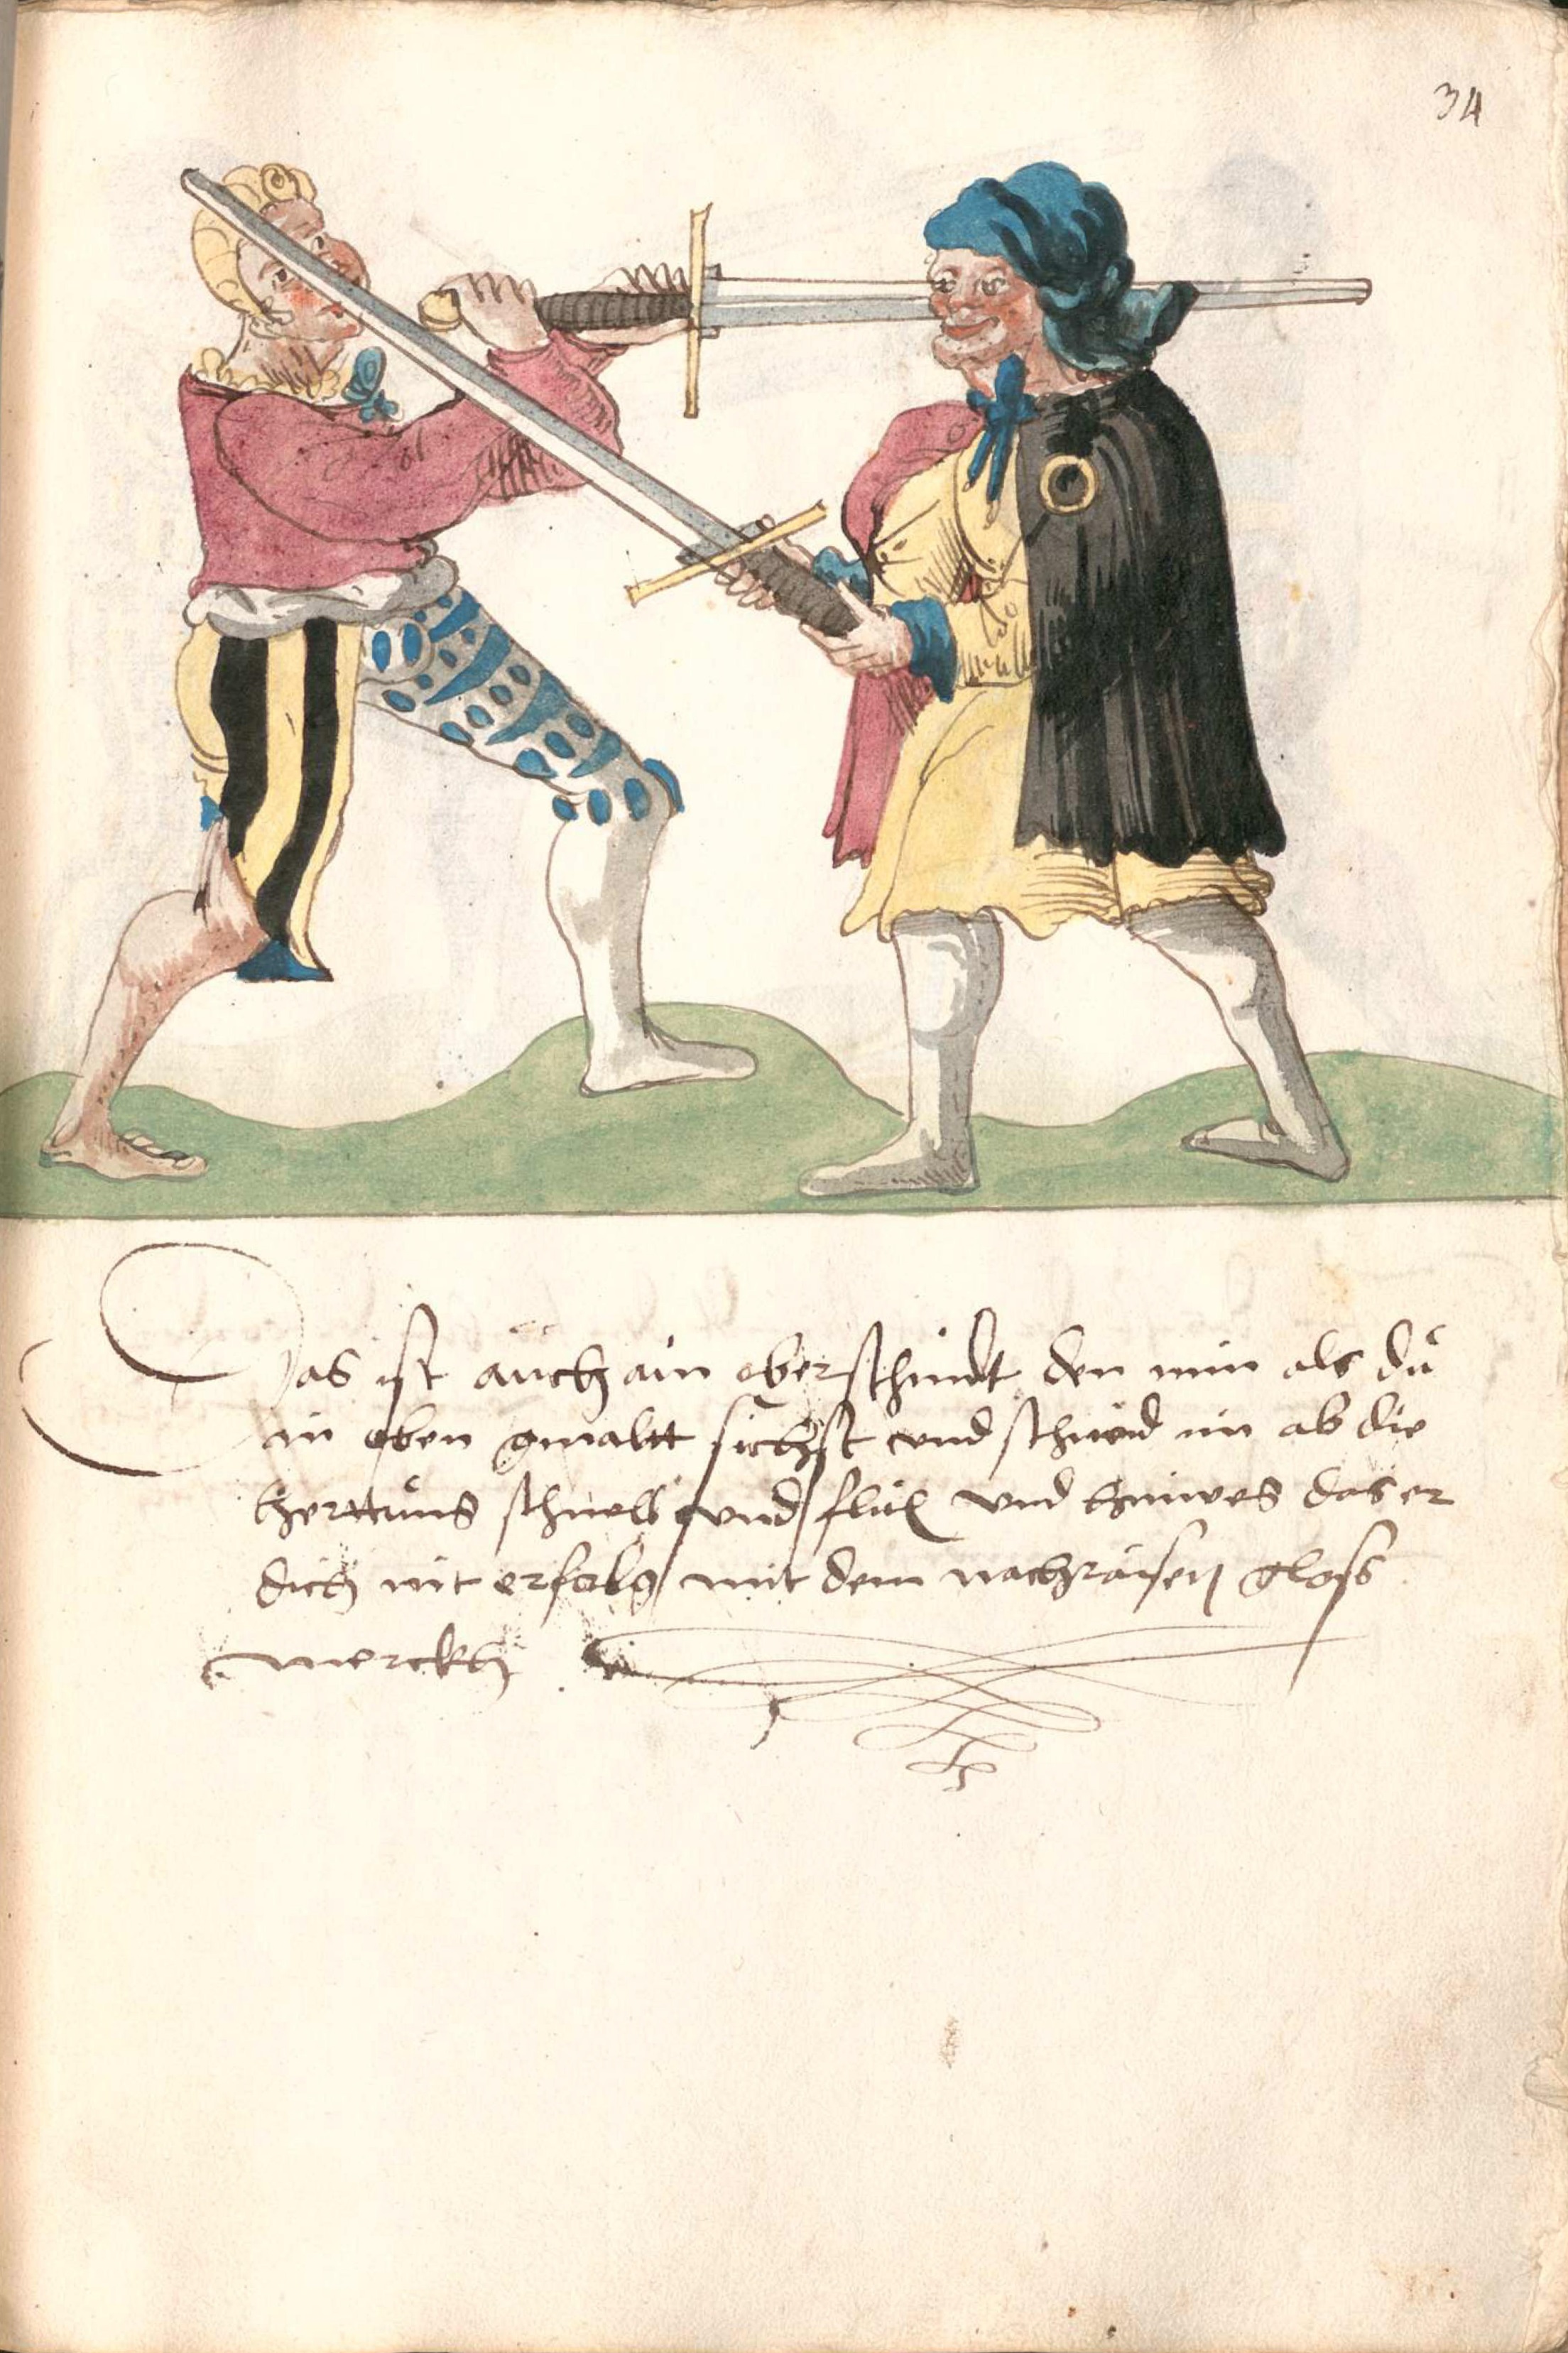 34
Das ist auch ain oberschnidt den nim als du
in oben gmaltt sichst vnd schneid im ab die
herttens schnell vnd flux vnd das er
dich nit erfolg mit dem nachraisen gloss
merckh